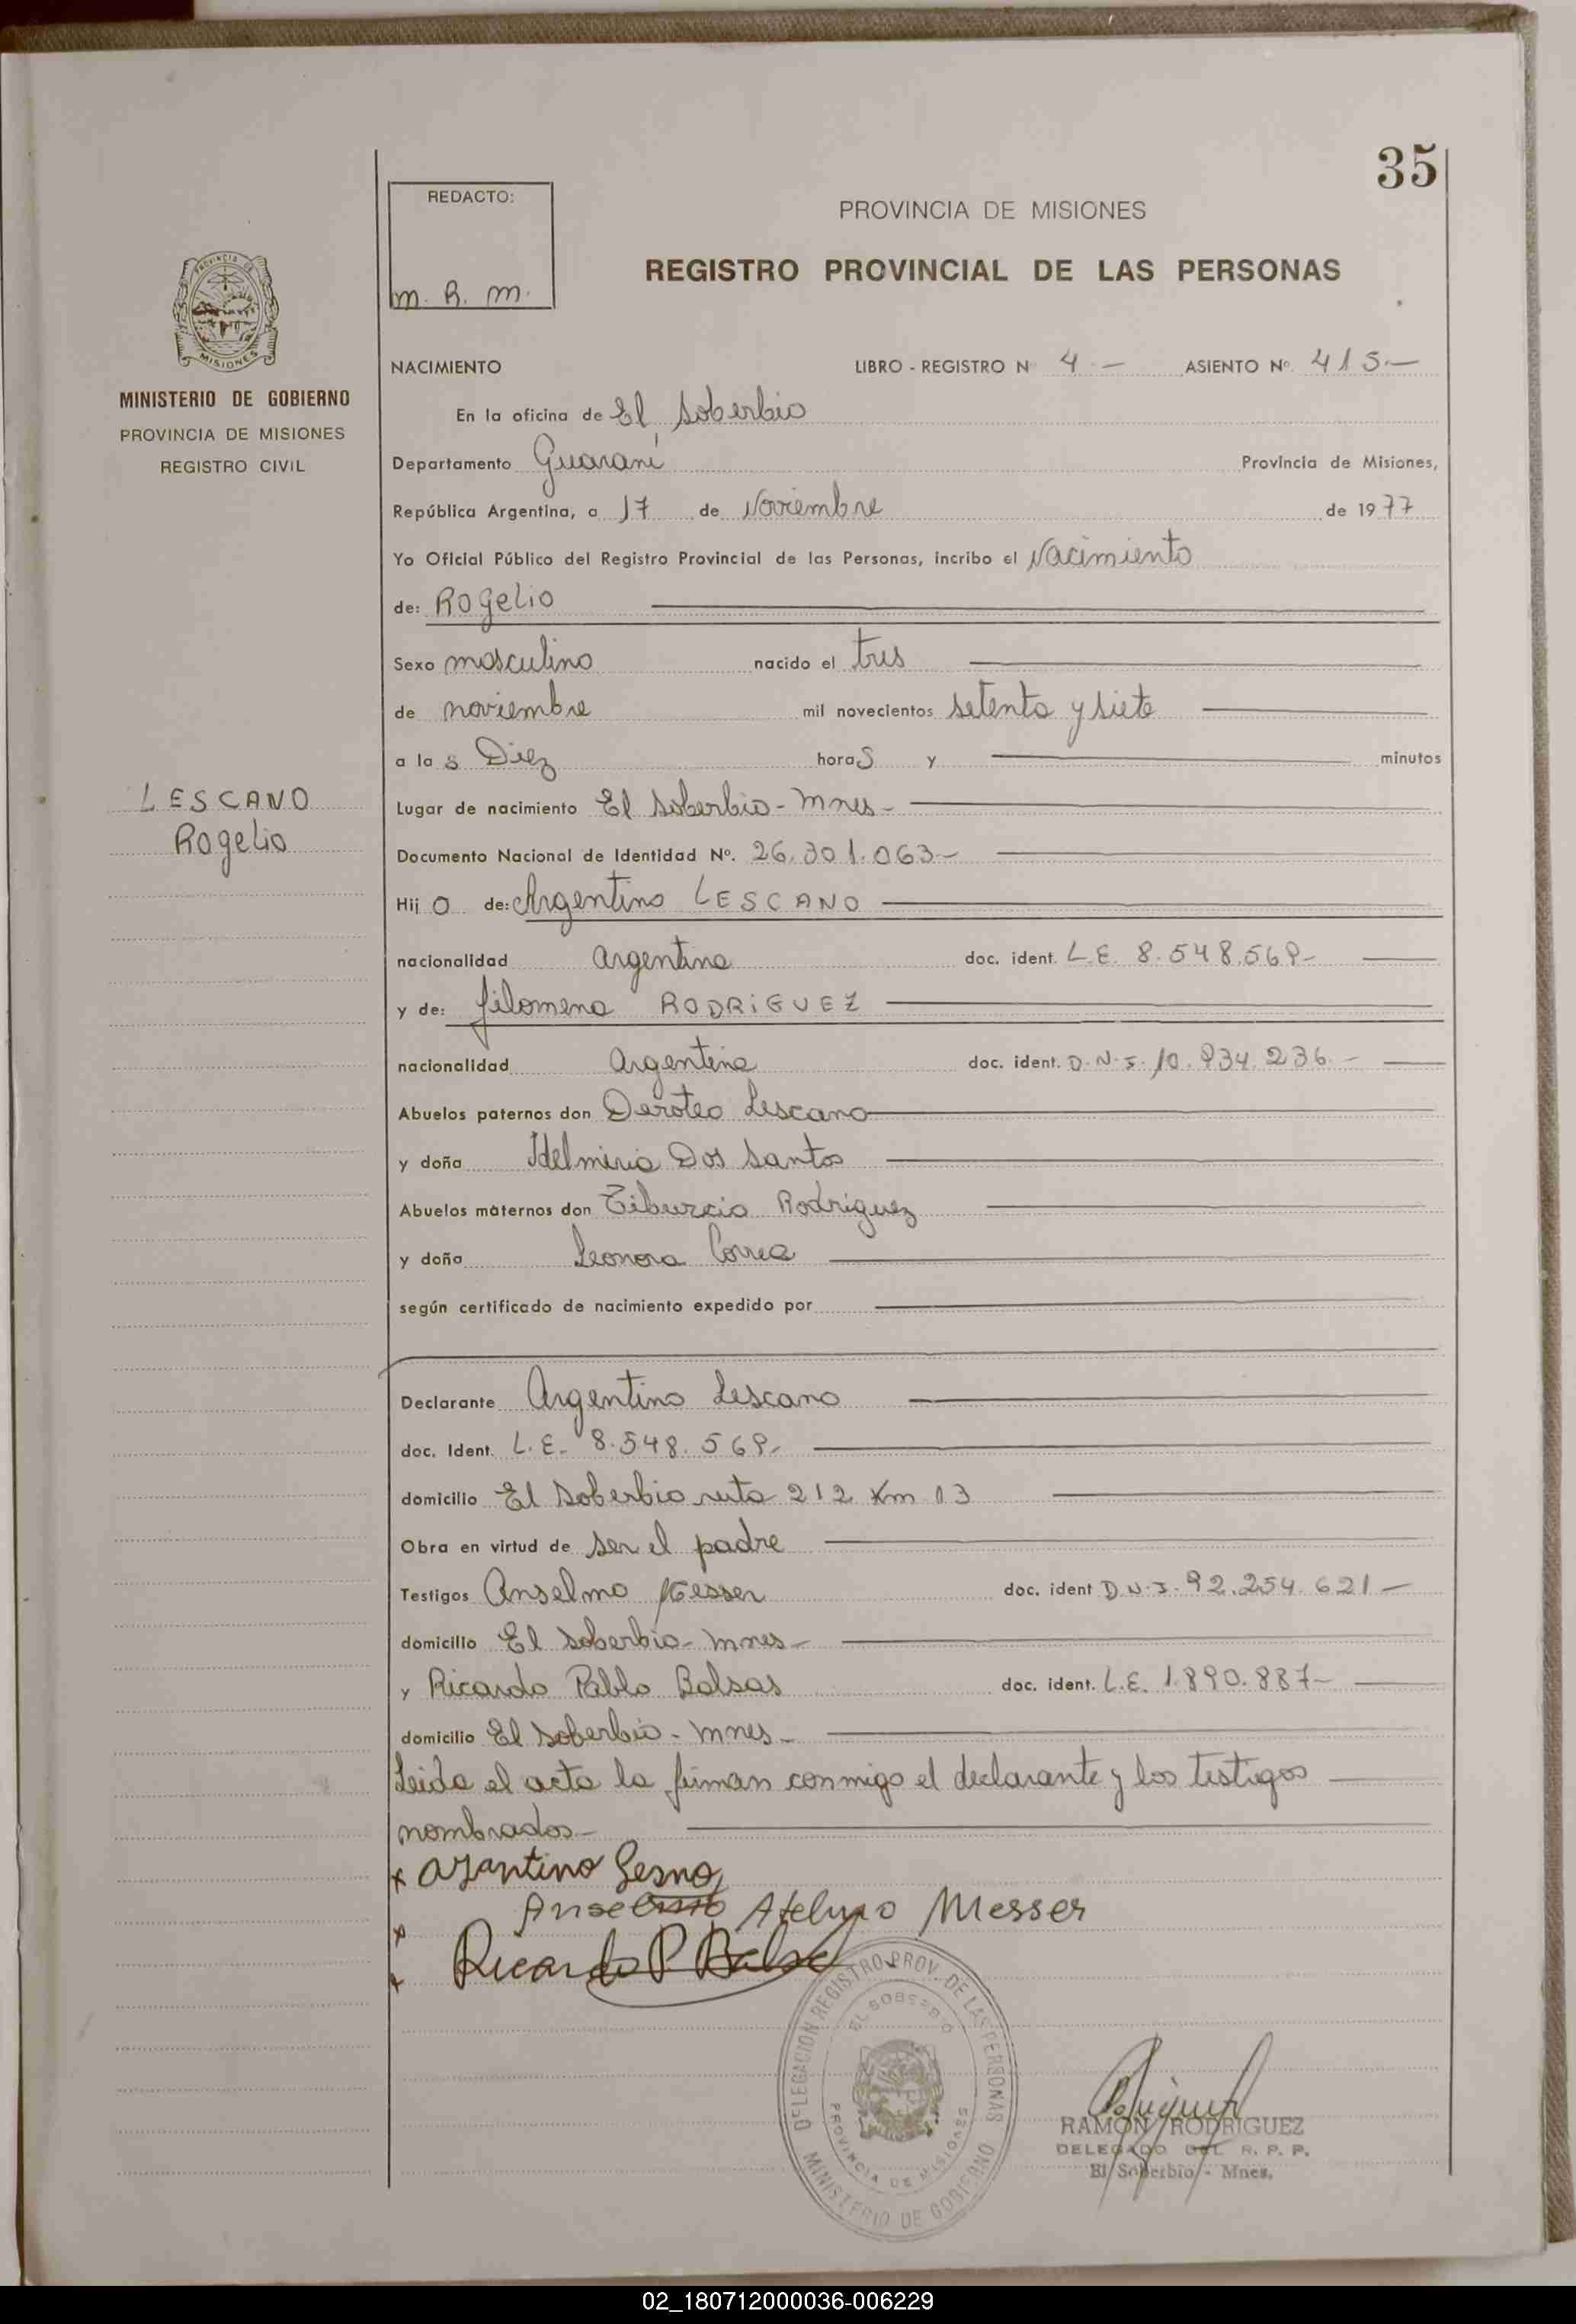 35
REDACTO:
m. R. m.
PROVINCIA DE MISIONES
REGISTRO PROVINCIAL DE LAS PERSONAS
PROVINCIA DE
MISIONES
MINISTERIO DE GOBIERNO
PROVINCIA DE MISIONES
REGISTRO CIVIL
NACIMIENTO LIBRO - REGISTRO N 4 - ASIENTO Nº 415.-
En la oficina de El Soberbio
Departamento Guaraní Provincia de Misiones,
República Argentina, a 17 de Noviembre de 1977
Yo Oficial Público del Registro Provincial de las Personas, incribo el Nacimiento
de: Rogelio
Sexo masculino nacido el tres
de noviembre mil novecientos setenta y siete
a la s Diez hora s y minutos
LESCANO
Rogelio
Lugar de nacimiento El Soberbio - Mnes -
Documento Nacional de Identidad Nº. 26.301.063-
Hij o de: Argentino LESCANO
nacionalidad argentina doc. ident. L.E. 8.548.569-
y de: filomena RODRIGUEZ
nacionalidad argentina doc. ident. D.N.I. 10.934.236.-
Abuelos paternos don Deroteo Lescano
y doña Idelmiria Dos Santos
Abuelos maternos don Tiburcio Rodriguez
y doña Leonora Correa
según certificado de nacimiento expedido por
Declarante Argentino Lescano
doc. Ident. L.E. 8.548.569-
domicilio El Soberbio ruta 212 Km 13
Obra en virtud de ser el padre
Testigos Anselmo Messer doc. ident D.N.I. 92.254.621-
domicilio El Soberbio - Mnes -
y Ricardo Pablo Balsas doc. ident. L.E. 1.890.887-
domicilio El Soberbio - Mnes -
Leida el acta la firman conmigo el declarante y los testigos
nombrados -
x
Messer
x
x Ricardo P
DELEGACION REGISTRO PROV. DE LAS PERSONAS
EL SOBERBIO
PROVINCIA DE MISIONES
MINISTERIO DE GOBIERNO
RAMON RODRIGUEZ
DELEGADO DEL R. P. P.
El Soberbio - Mnes.
02_180712000036-006229